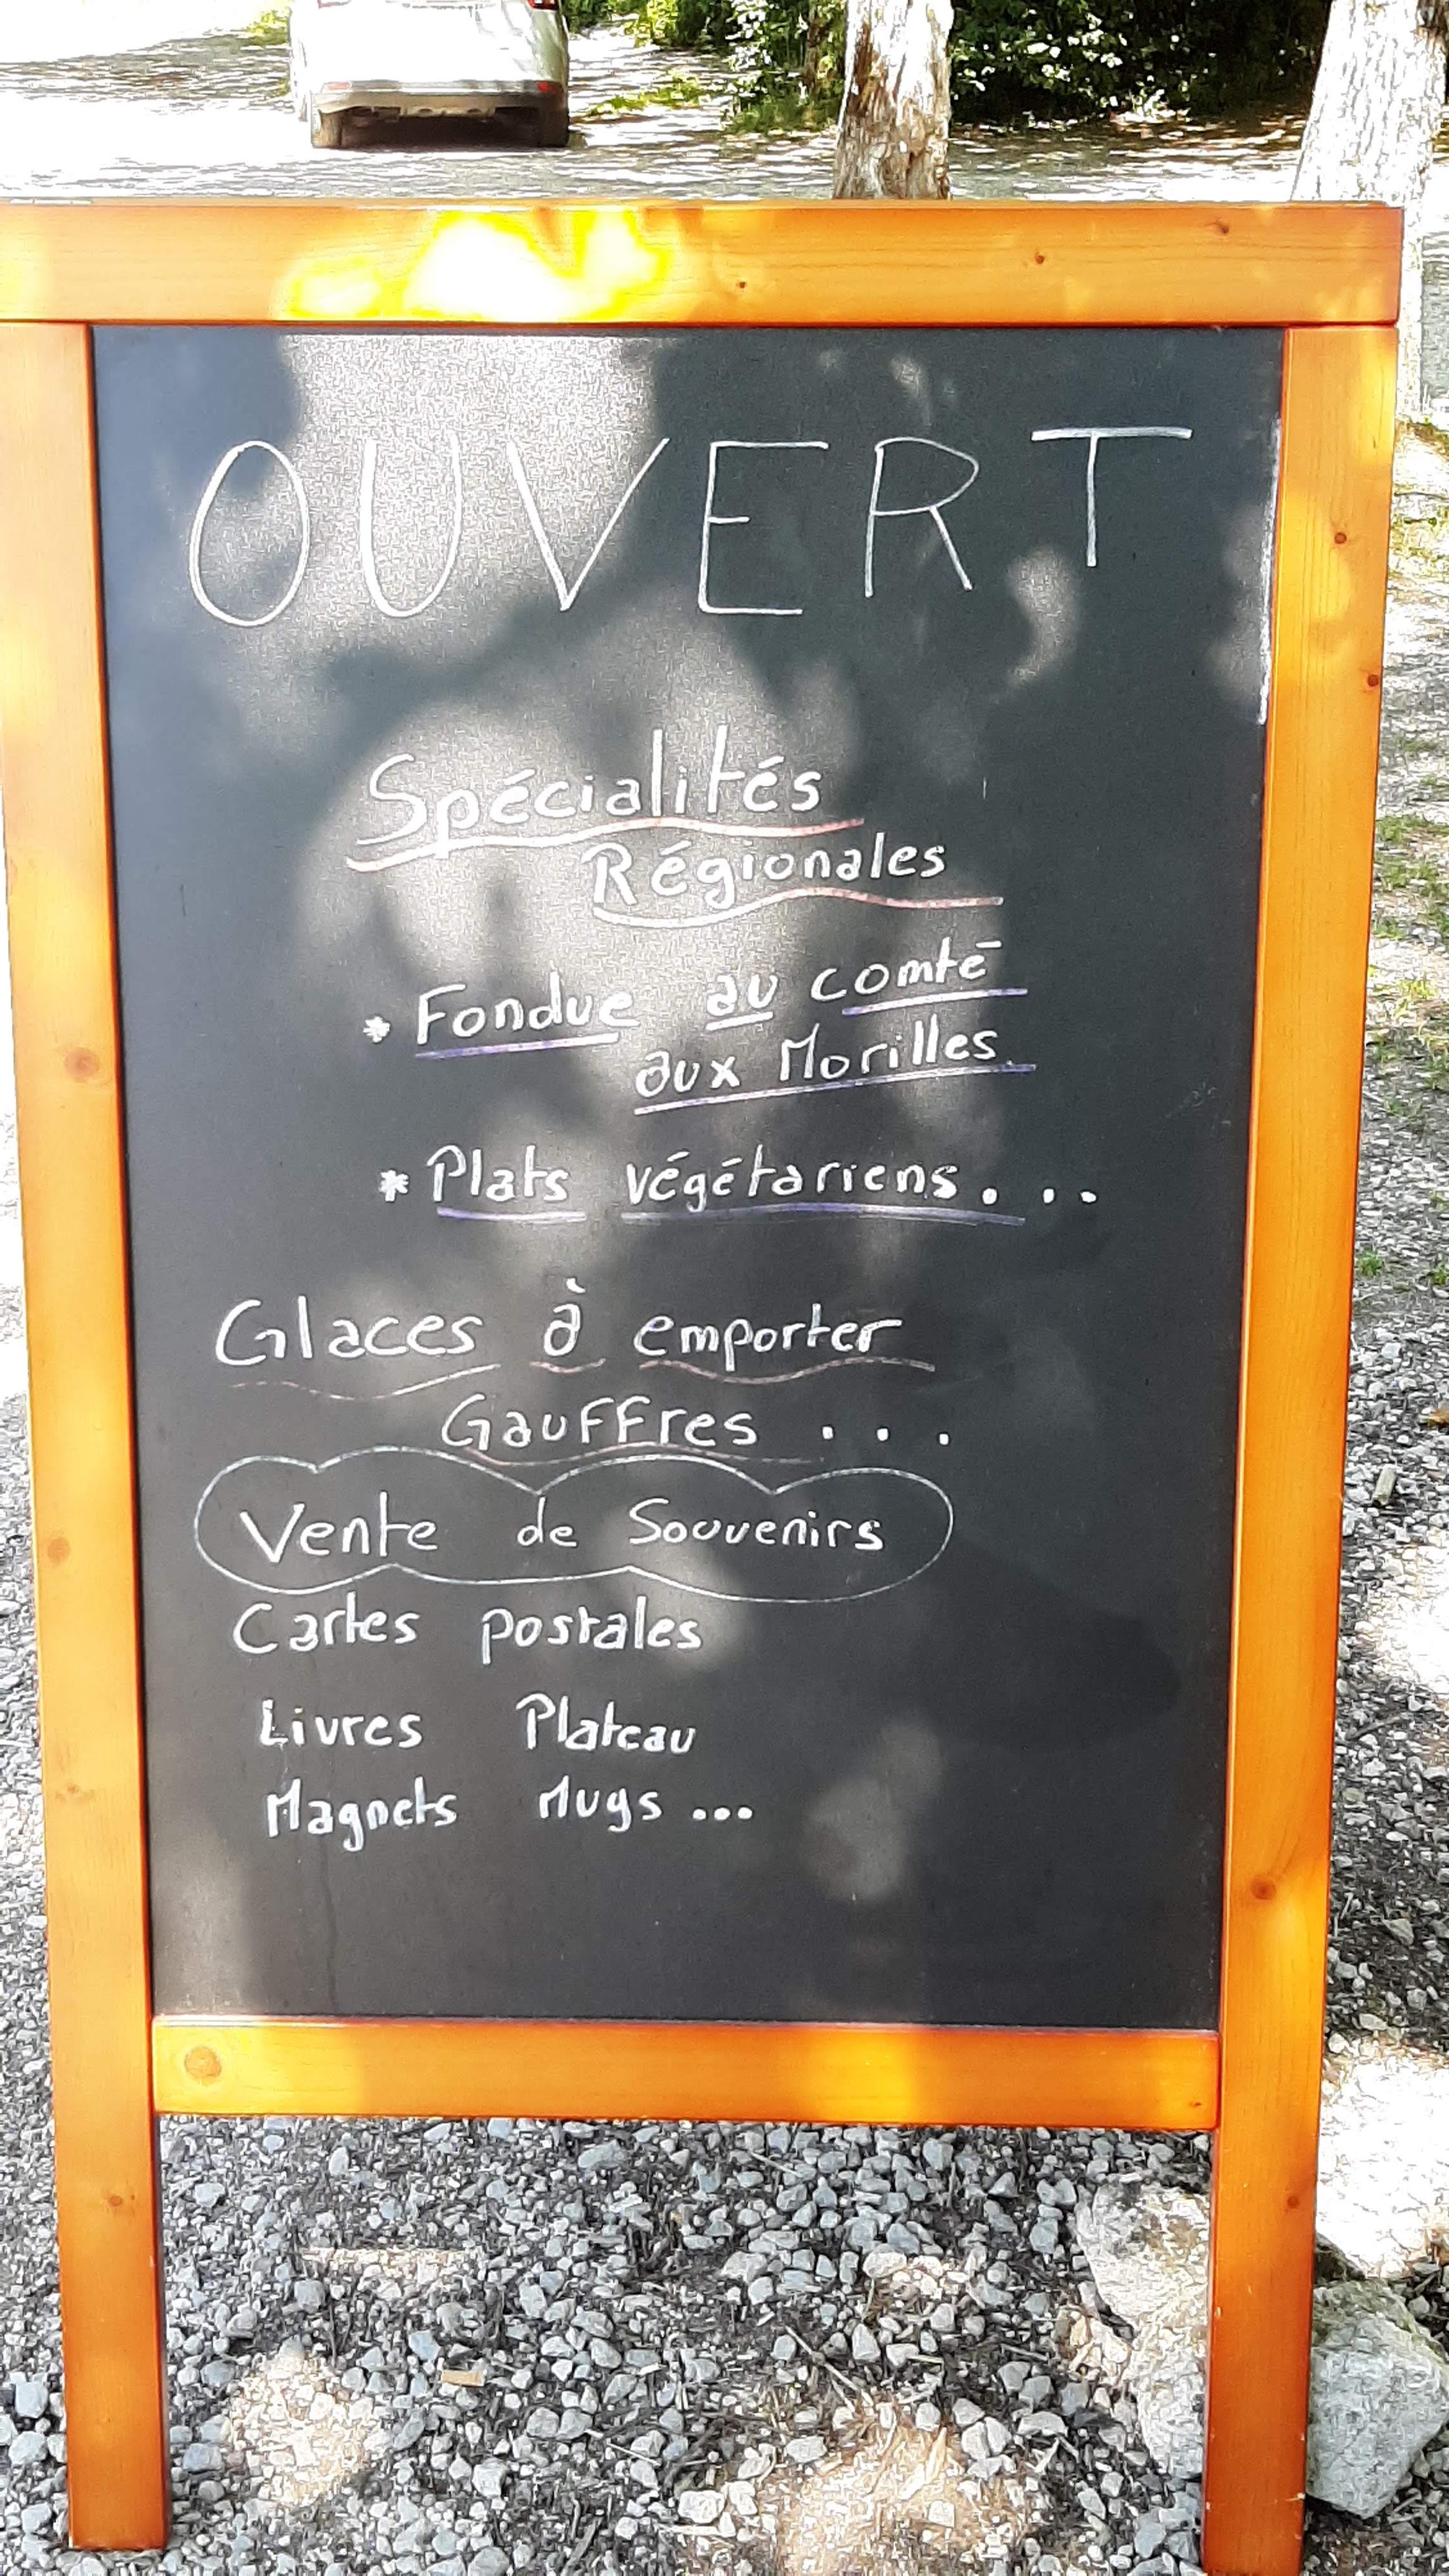 OUVERT
Spécialités
Régionales
* Fondue au comté
aux Morilles
* Plats végétariens...
Glaces à emporter
Gauffres ...
Vente de Souvenirs
Cartes postales
Livres Plateau
Magnets Mugs ...